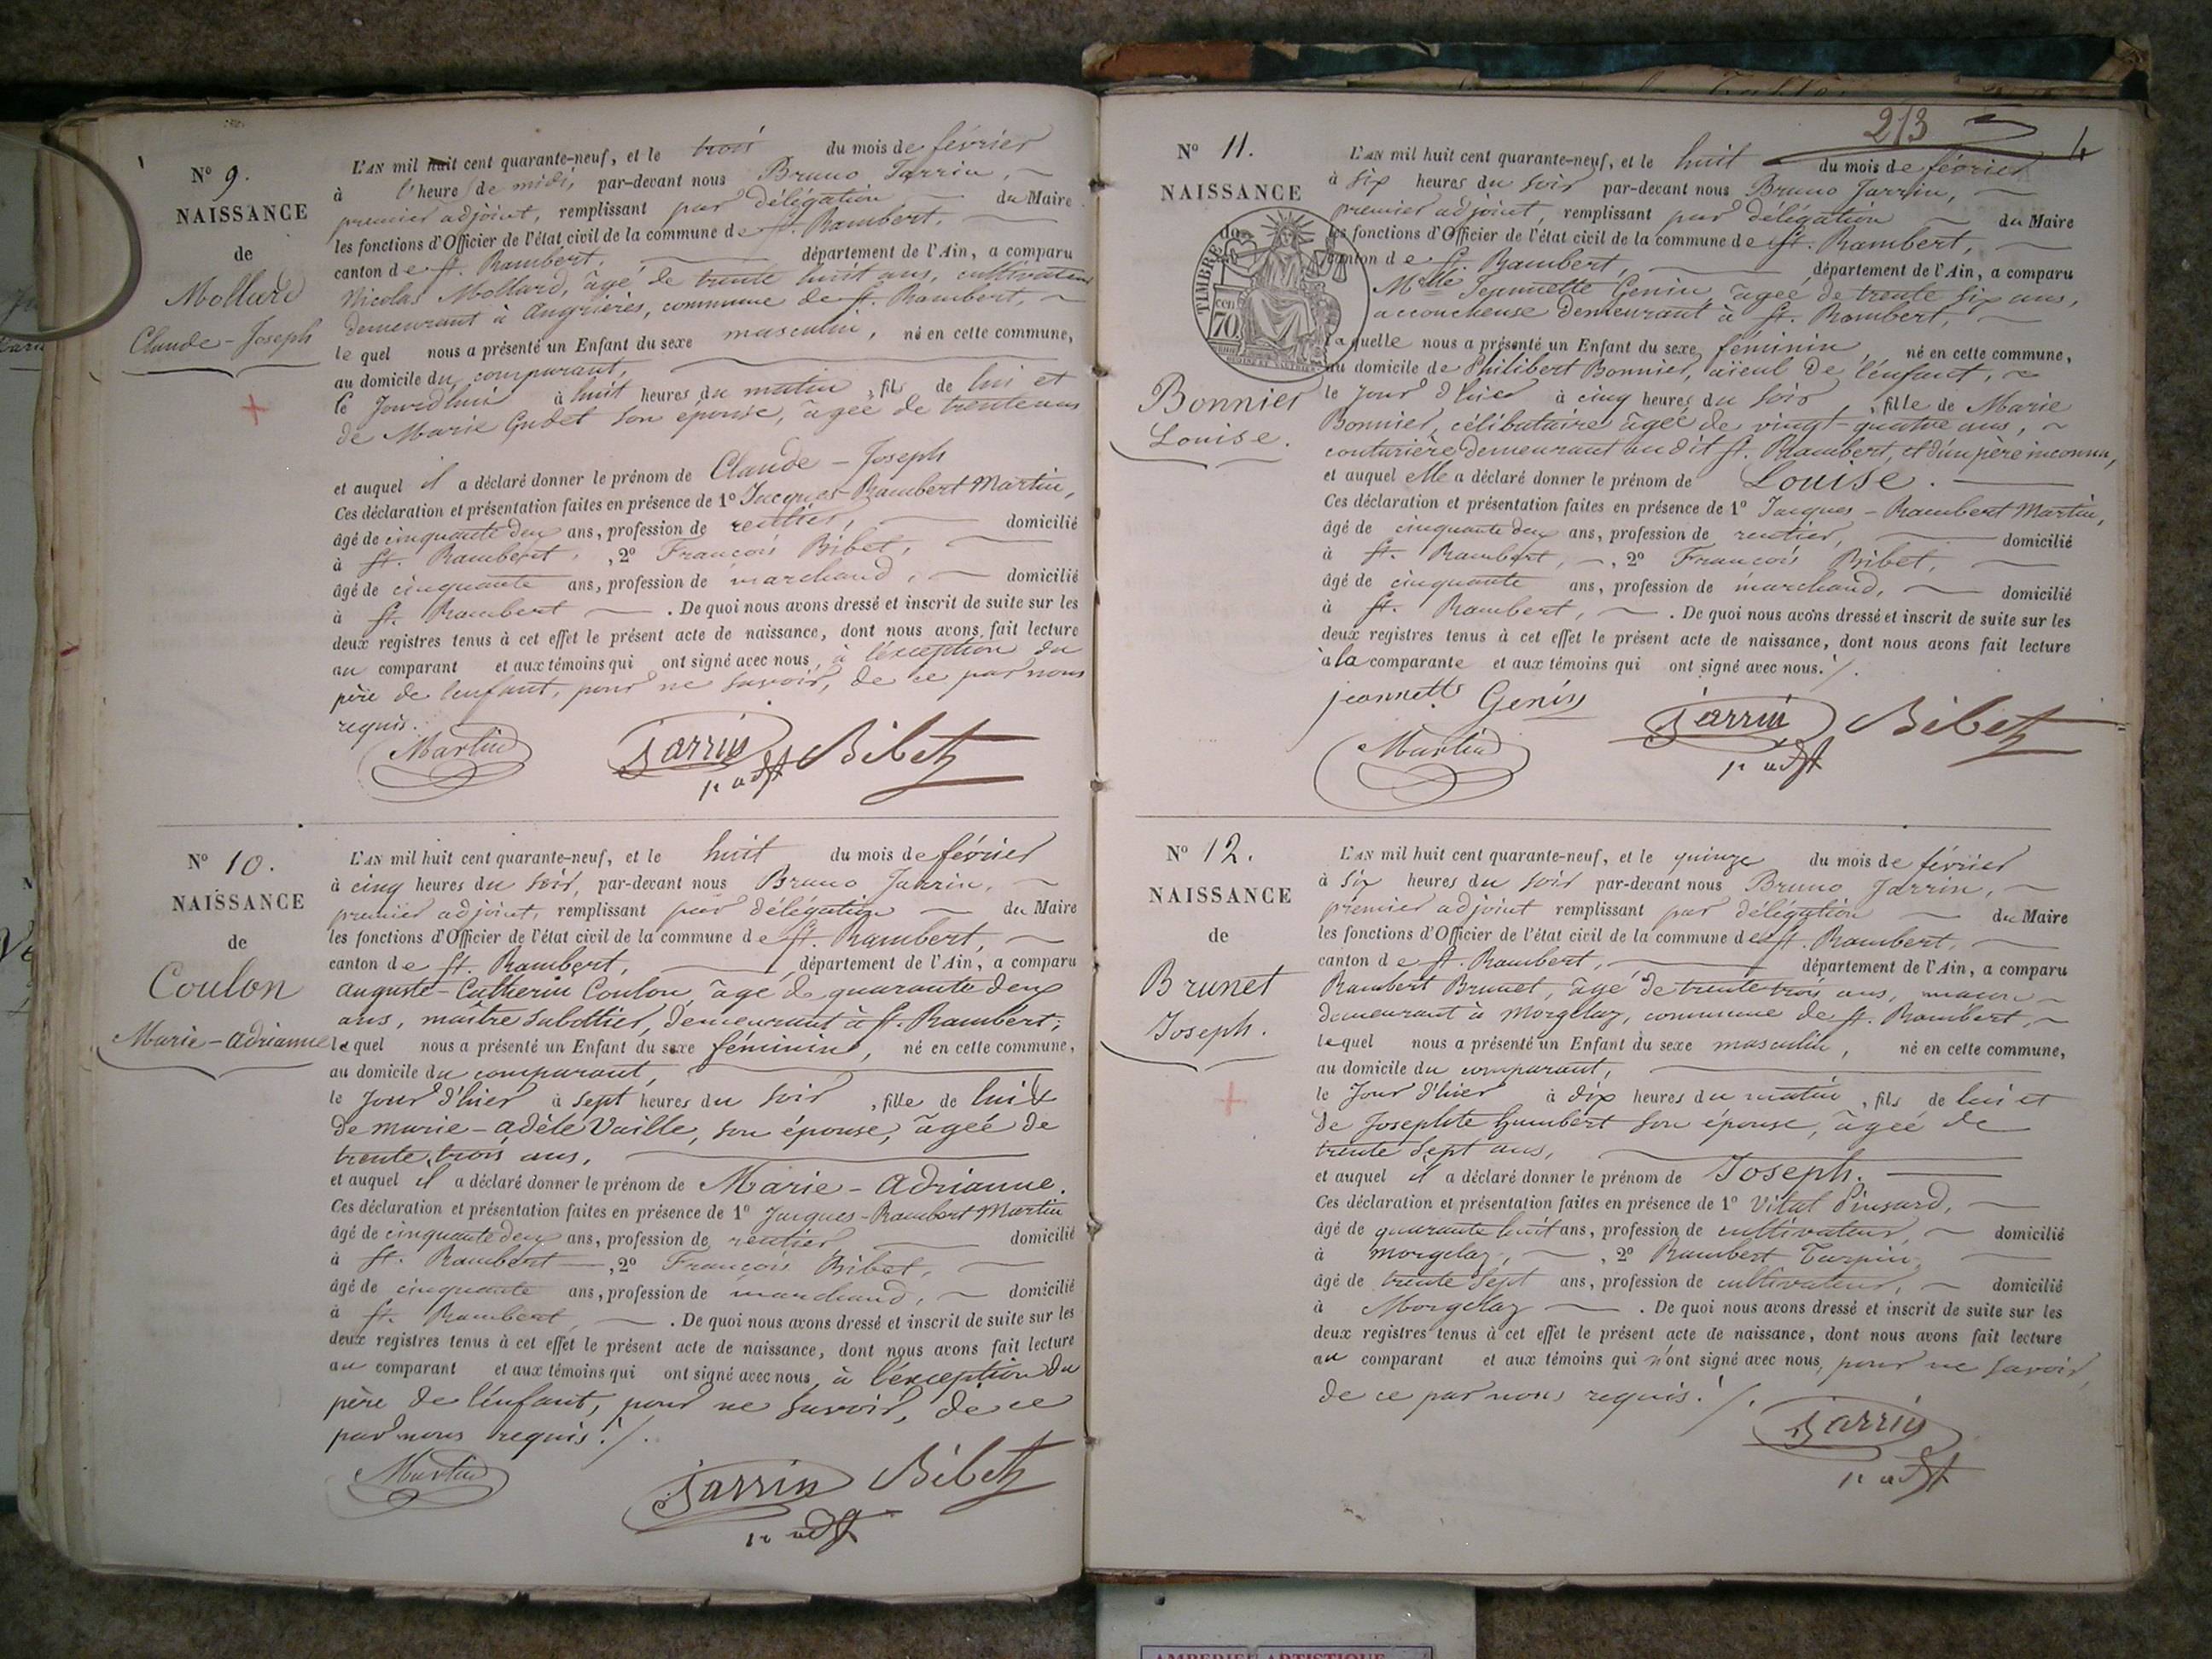 N° 9.
NAISSANCE
de
Mollard
Claude-Joseph
L'AN mil huit cent quarante-neuf, et le trois du mois de février
à l'heure de midi, par-devant nous Bruno Jarrin,
premier adjoint, remplissant par délégation du Maire
les fonctions d'Officier de l'état civil de la commune de St. Rambert,
canton de St. Rambert, département de l'Ain, a comparu
Nicolas Mollard, âgé de trente huit ans, cultivateur
demeurant à Angrières, commune de St. Rambert,
lequel nous a présenté un Enfant du sexe masculin, né en cette commune,
au domicile du comparant,
le Jourdhui à huit heures du matin, fils de lui et
de Marie Gudet son épouse, âgée de trente ans
et auquel il a déclaré donner le prénom de Claude-Joseph
Ces déclaration et présentation faites en présence de 1° Jacques-Rambert Martin,
âgé de cinquante deux ans, profession de rentier, domicilié
à St. Rambert, 2° François Bibet,
âgé de cinquante ans, profession de marchand, domicilié
à St. Rambert. De quoi nous avons dressé et inscrit de suite sur les
deux registres tenus à cet effet le présent acte de naissance, dont nous avons fait lecture
au comparant et aux témoins qui ont signé avec nous, à l'exception du
père de l'enfant, pour ne savoir, de ce par nous
requis.
Martin Jarrin Bibet
1er adjt
N° 10.
NAISSANCE
de
Coulon
Marie-Adrianne
L'AN mil huit cent quarante-neuf, et le huit du mois de février
à cinq heures du soir, par-devant nous Bruno Jarrin,
premier adjoint, remplissant par délégation du Maire
les fonctions d'Officier de l'état civil de la commune de St. Rambert,
canton de St. Rambert, département de l'Ain, a comparu
Auguste-Catherin Coulon, âgé de quarante deux
ans, maitre sabottier, demeurant à St. Rambert,
lequel nous a présenté un Enfant du sexe féminin, né en cette commune,
au domicile du comparant,
le Jour d'hier à sept heures du soir, fille de lui &
de marie-adèle Vaille, son épouse, âgée de
trente trois ans,
et auquel il a déclaré donner le prénom de Marie-Adrianne.
Ces déclaration et présentation faites en présence de 1° Jacques-Rambert Martin
âgé de cinquante deux ans, profession de rentier domicilié
à St. Rambert, 2° François Bibet,
âgé de cinquante ans, profession de marchand, domicilié
à St. Rambert. De quoi nous avons dressé et inscrit de suite sur les
deux registres tenus à cet effet le présent acte de naissance, dont nous avons fait lecture
au comparant et aux témoins qui ont signé avec nous, à l'exception du
père de l'enfant, pour ne savoir, de ce
par nous requis./.
Martin Jarrin Bibet
1er adjt
213 4
N° 11.
NAISSANCE
de
TIMBRE
70
Bonnier
Louise.
L'AN mil huit cent quarante-neuf, et le huit du mois de février
à six heures du soir par-devant nous Bruno Jarrin,
premier adjoint, remplissant par délégation du Maire
les fonctions d'Officier de l'état civil de la commune de St. Rambert,
canton de St. Rambert, département de l'Ain, a comparu
Melle Jeannette Genin, âgée de trente six ans,
accoucheuse demeurant à St. Rambert,
laquelle nous a présenté un Enfant du sexe féminin, né en cette commune,
au domicile de Philibert Bonnier, aïeul de l'enfant,
le jour d'hier à cinq heures du soir, fille de Marie
Bonnier, célibataire âgée de vingt-quatre ans,
couturière demeurant au dit St. Rambert, et d'un père inconnu,
et auquel elle a déclaré donner le prénom de Louise.
Ces déclaration et présentation faites en présence de 1° Jacques-Rambert Martin,
âgé de cinquante deux ans, profession de rentier, domicilié
à St. Rambert, 2° François Bibet,
âgé de cinquante ans, profession de marchand, domicilié
à St. Rambert,. De quoi nous avons dressé et inscrit de suite sur les
deux registres tenus à cet effet le présent acte de naissance, dont nous avons fait lecture
à la comparante et aux témoins qui ont signé avec nous./.
jeannette Genin Jarrin Bibet
Martin 1er adjt
N° 12.
NAISSANCE
de
Brunet
Joseph.
L'AN mil huit cent quarante-neuf, et le quinze du mois de février
à six heures du soir par-devant nous Bruno Jarrin,
premier adjoint remplissant par délégation du Maire
les fonctions d'Officier de l'état civil de la commune de St. Rambert,
canton de St. Rambert, département de l'Ain, a comparu
Rambert Brunet, âgé de trente trois ans, maçon
demeurant à Morgelaz, commune de St. Rambert,
lequel nous a présenté un Enfant du sexe masculin, né en cette commune,
au domicile du comparant,
le Jour d'hier à dix heures du matin, fils de lui et
de Josephte humbert son épouse, âgée de
trente sept ans,
et auquel il a déclaré donner le prénom de Joseph.
Ces déclaration et présentation faites en présence de 1° Vital Pinsard,
âgé de quarante huit ans, profession de cultivateur, domicilié
à Morgelaz, 2° Rambert Turpin,
âgé de trente sept ans, profession de cultivateur, domicilié
à Morgelaz. De quoi nous avons dressé et inscrit de suite sur les
deux registres tenus à cet effet le présent acte de naissance, dont nous avons fait lecture
au comparant et aux témoins qui n'ont signé avec nous, pour ne savoir,
de ce par nous requis./.
Jarrin
1er adjt
AMBERIEU ARTISTIQUE